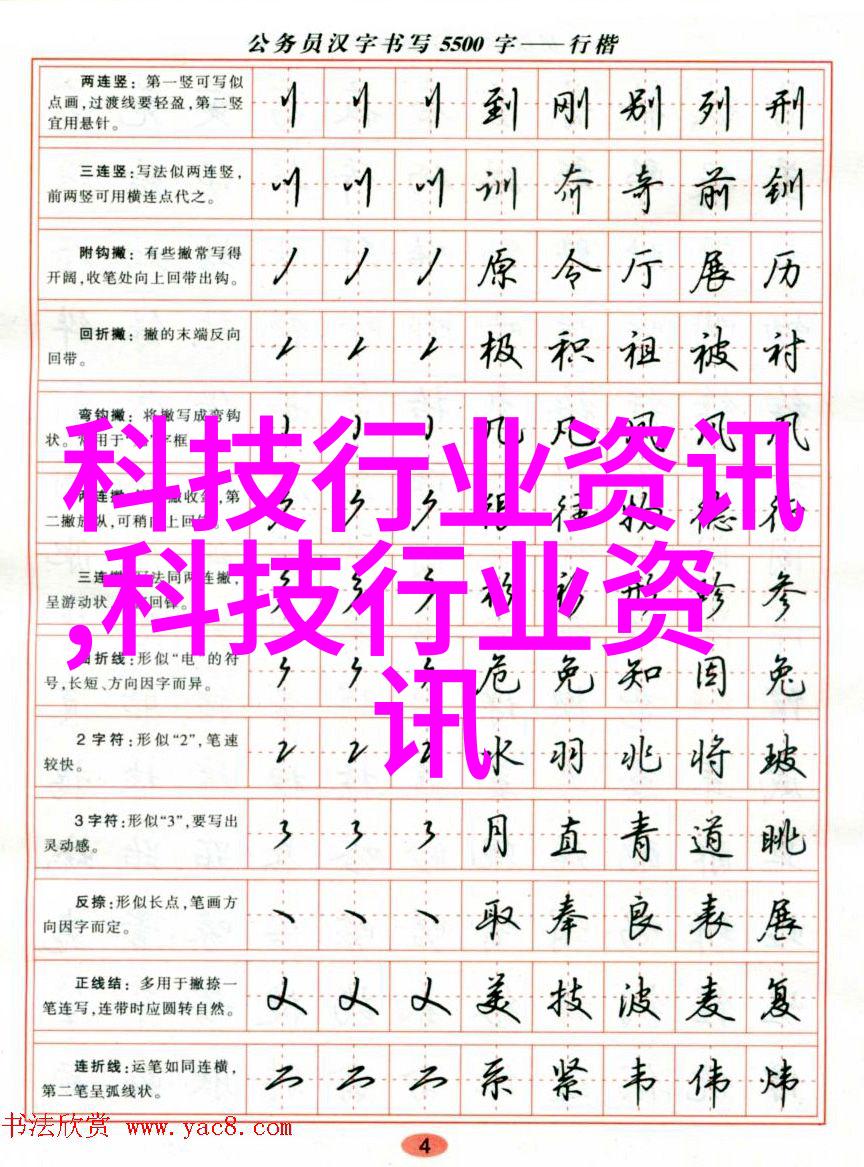 公务员汉字书写5500字——行楷
两连竖：第一竖可写似
点画,过渡线要轻盈,第二竖
宜用悬针。
刂 刂 刂 到 刚 别 列 刑
三连竖:写法似两连竖，
前两竖可用横连点代之。
训 夯 奇 前 钏
附钩撇：有些撇常写得
开阔,收笔处向上回带出钩。
原 令 厅 展 历
回折撇：撇的末端反向
回带。
极 积 祖 被 衬
弯钩撇：将撇写成弯钩
状。
几 凡 风 风 风
科技行业资讯
,科技行业资
讯
两连撇
二撇放纵,可稍向上回
很 往 物 德 行
三连撇:写法同两连撇,
呈游动状
形 珍 参
折线:形似“电”的符
号,长短、方向因字而异。
危 免 知 因 兔
2字符:形似“2”,笔速
较快。
2 2 2 水 羽 兆 将 玻
3字符:形似“3”,要写出
灵动感。
3 3 3 月 直 青 道 眺
反捺:形似长点,笔画方
向因字而定。
取 奉 良 表 展
正线结：多用于撇捺一
笔连写,连带时应圆转自然。
美 技 波 麦 复
连折线:运笔如同连横,
第二笔呈弧线状。
系 紧 韦 伟 炜
书法欣赏 www.yac8.com
4